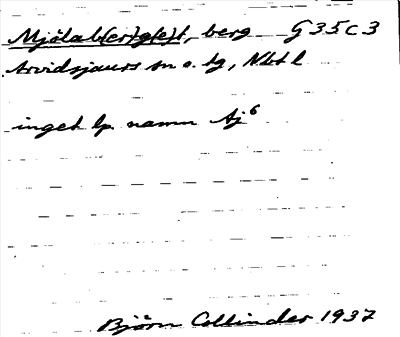 Mjölab(er)g(e)t, berg G 35 c 3
Arvidsjaurs sn o. tg, Nbtl
inget lp. namn Aj 6
Björn Collinder 1937